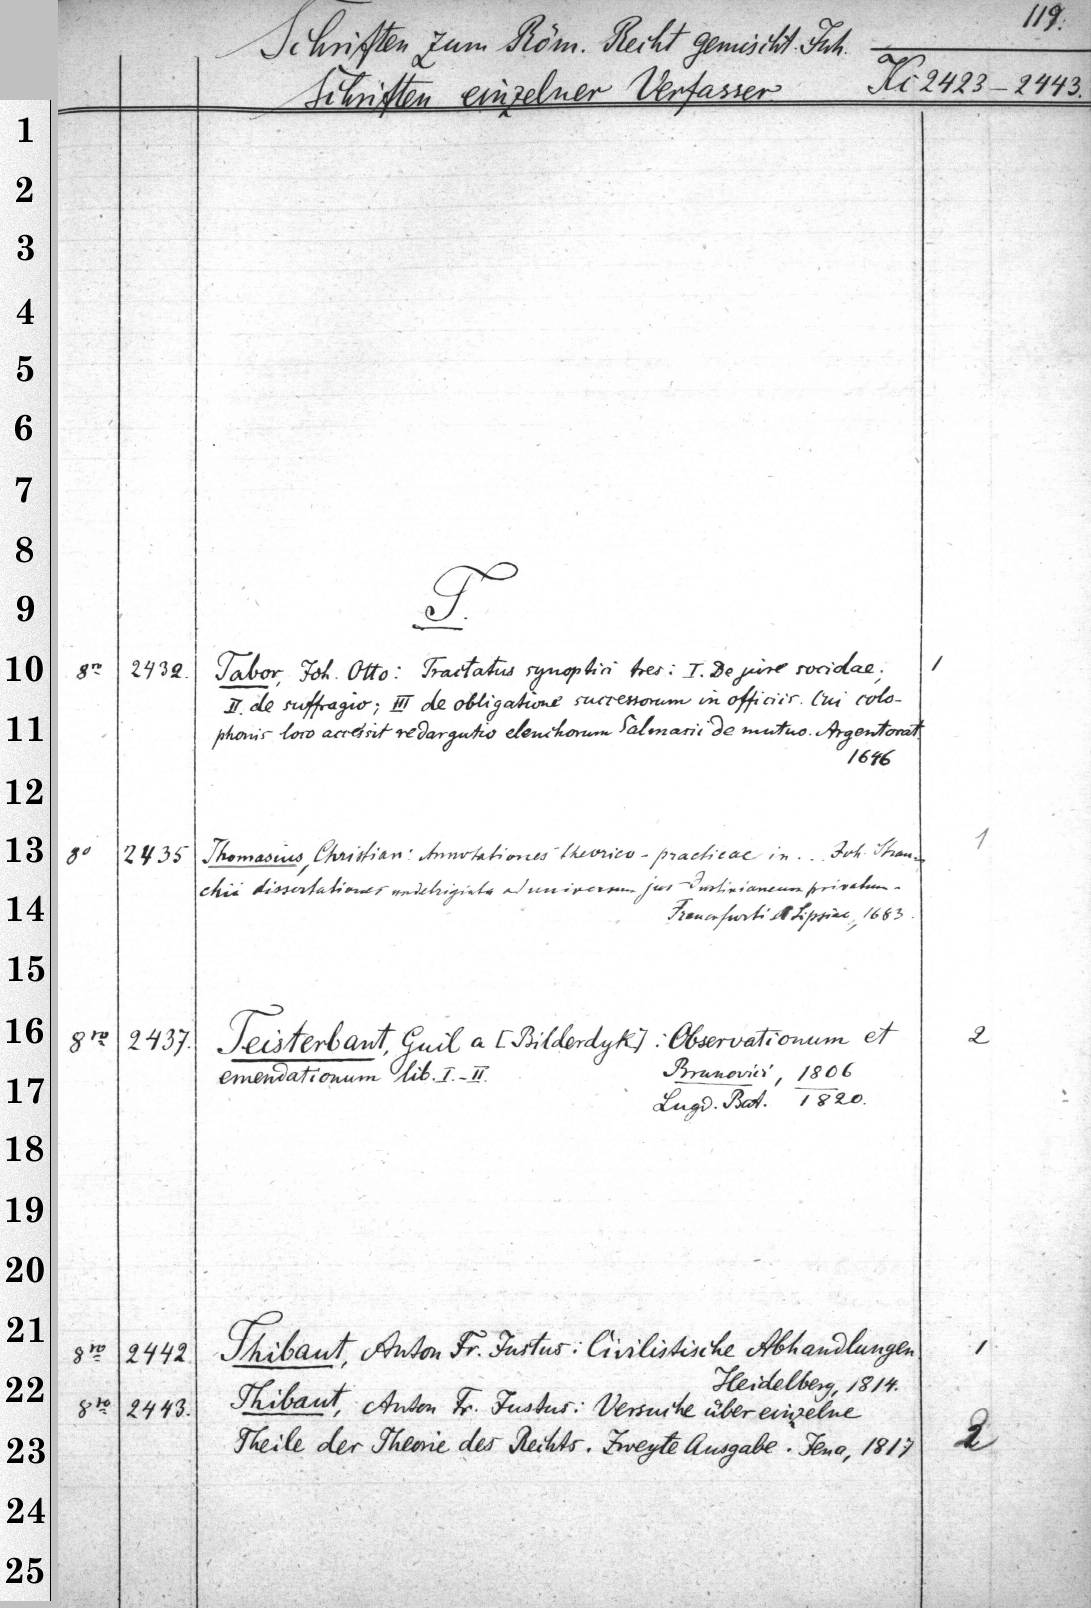 119.
Schriften zum Röm. Recht gemischt. Inh.
Schriften einzelner Verfasser
Ki 2423 – 2443.
1
2
3
4
5
6
7
8
T.
9
10 8ro 2432. Tabor, Joh. Otto: Tractatus synoptici tres: I. De jure socidae; 1
II. de suffragio; III de obligatione successorum in officiis. Cui colo-
11 phonis loco accessit redargutio elenchorum Salmasii de mutuo. Argentorat.
1646
12
13 8o 2435 Thomasius, Christian: Annotationes theorico-practicae in ... Joh. Strau- 1
chii dissertationes undetriginta ad universum jus Justinianeum privatum.
14 Francofurti et Lipsiae, 1683.
15
16 8ro 2437. Teisterbant, Guil a [Bilderdyk]: Observationum et 2
emendationum lib. I.-II. Brunovici, 1806
17 Lugd. Bat. 1820.
18
19
20
21 8ro 2442 Thibaut, Anton Fr. Justus: Civilistische Abhandlungen 1
22 Heidelberg, 1814.
8ro 2443. Thibaut, Anton Fr. Justus: Versuche über einzelne
23 Theile der Theorie des Rechts. Zweyte Ausgabe. Jena, 1817 2
24
25